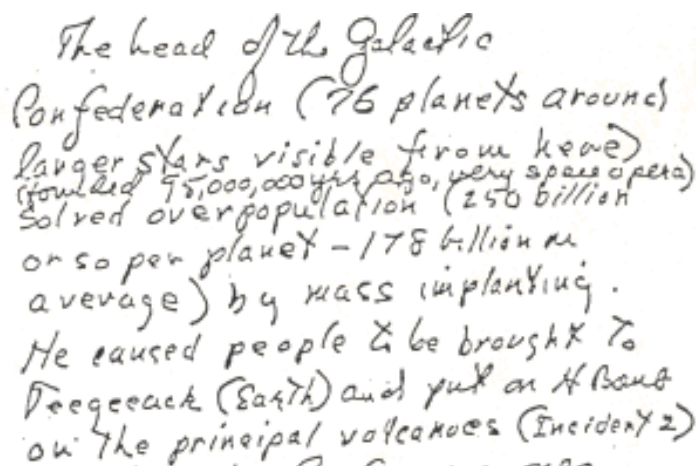 The head of the Galactic
Confederation (76 planets around
larger stars visible from here)
(founded 95,000,000 yrs ago, very space opera)
solved overpopulation (250 billion
or so per planet – 178 billion on
average) by mass implanting.
He caused people to be brought to
Teegeeack (Earth) and put an H Bomb
on the principal volcanoes (Incident 2)